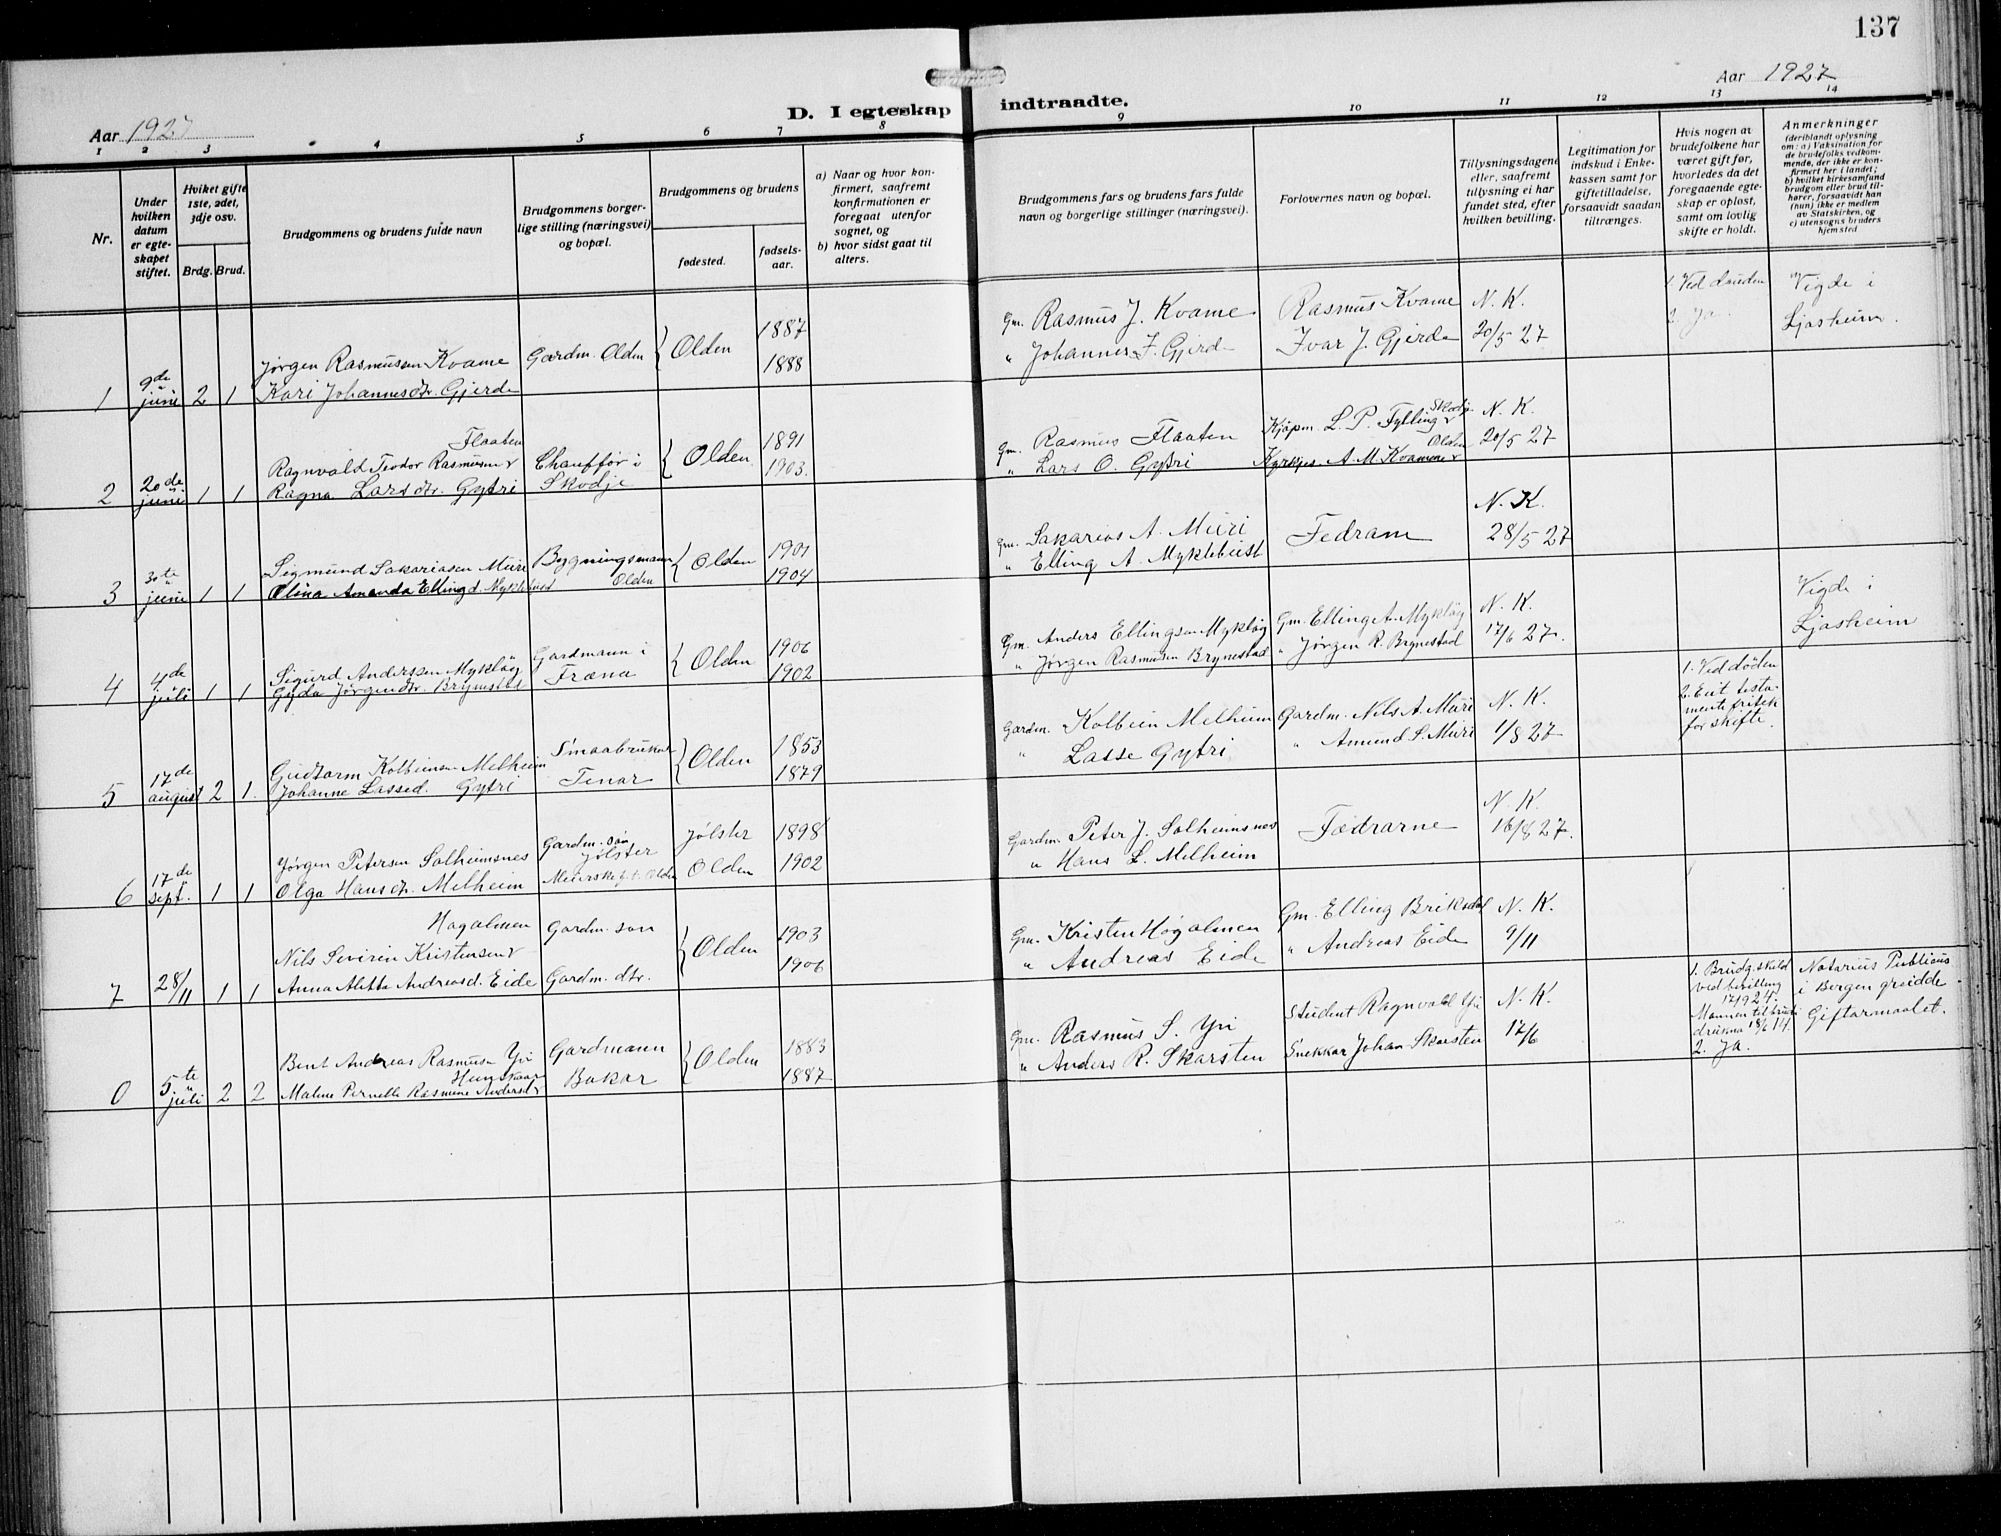 137
Aar 1927
D. I egteskap indtraadte.
Aar 1927
1 2 3 4 5 6 7 8 9 10 11 12 13 14
Nr.
Under hvilken datum er egteskapet stiftet.
Hviket gifte 1ste, 2det, 3dje osv.
Brdg. Brud.
Brudgommens og brudens fulde navn
Brudgommens borgerlige stilling (næringsvei) og bopæl.
Brudgommens og brudens
fødested.
fødselsaar.
a) Naar og hvor konfirmert, saafremt konfirmationen er foregaat utenfor sognet, og
b) hvor sidst gaat til alters.
Brudgommens fars og brudens fars fulde navn og borgerlige stillinger (næringsvei).
Forlovernes navn og bopæl.
Tillysningsdagene eller, saafremt tillysning ei har fundet sted, efter hvilken bevilling.
Legitimation for indskud i Enkekassen samt for giftetilladelse, forsaavidt saadan tiltrænges.
Hvis nogen av brudefolkene har været gift før, hvorledes da det foregaaende egteskap er opløst, samt om lovlig skifte er holdt.
Anmerkninger
(deriblandt oplysning om: a) Vaksination for de brudefolks vedkommende, der ikke er konfirmert her i landet; b) hvilket kirkesamfund brudgom eller brud tilhører, forsaavidt han (hun) ikke er medlem av Statskirken, og c) utensogns bruders hjemsted
1 9de juni 2 1
Jørgen Rasmussen Kvame
Kari Johannesdtr. Gjerde
Gardm. Olden
Olden
1887
1888
Gm. Rasmus J. Kvame
" Johannes J. Gjerde
Rasmus Kvame
Ivar J. Gjerde
N. K.
20/5 27
1. Ved dauden
2. Ja.
Vigde i
Ljosheim.
2 20de juni 1 1
Flaaten
Ragnvald Teodor Rasmussen
Ragna Larsdtr. Gytri
Chauffør i
Skodje
Olden
1891
1903.
Gm. Rasmus Flaaten
" Lars O. Gytri
Kjøpm. L. P. Fylling Skodje
Kyrkjes. A. M. Kvamme Olden
N. K.
20/5 27
3 30te juni 1 1
Sigmund Sakariasen Muri
Olina Amanda Ellingd. Myklebust
Bygningsmann
Olden
Olden
1901
1904
Gm. Sakarias A. Muri
" Elling A. Myklebust
Fedrane
N. K.
28/5 27
4 4de juli 1 1
Sigurd Andersen Mykløy
Gyda Jørgendtr. Brynestad
Gardmann i
Fræna
Olden
1906
1902
Gm. Anders Ellingsen Mykløy
" Jørgen Rasmusen Brynestad
Gm. Elling A. Mykløy
" Jørgen R. Brynestad
N. K.
17/6 27.
Vigde i
Ljosheim
5 17de august 2 1.
Gudtorm Kolbeinsen Melheim
Johanne Lassed. Gytri
Smaabrukar
Tenar
Olden
1853
1879
Gardm. Kolbein Melheim
" Lasse Gytri
Gardm. Nils A. Muri
" Amund S. Muri
N. K.
1/8 27
1. Ved døden
2. Eit testamente fritek
for skifte.
6 17de sept. 1 1
Jørgen Petersen Solheimsnes
Olga Hansdtr. Melheim
Gardm. son
Jølster
Olden
Jølster
Olden
1898
1902
Gardm. Peter J. Solheimsnes
" Hans L. Melheim
Fædrarne
N. K.
16/8 27.
7 28/11 1 1
Høgalmen
Nils Severin Kristensen
Anna Aletta Andreasd. Eide
Gardm. son
Gardm. dtr.
Olden
1903
1906
Gm. Kristen Høgalmen
" Andreas Eide
Gm. Elling Briksdal
" Andreas Eide
N. K.
9/11
0 5te juli 2 2
Bent Andreas Rasmusen Yri
Malene Pernelle Rasmine Andersd.
Gardmann
Bakar
Olden
1883
1887
Gm. Rasmus S. Yri
" Anders R. Skarsten
Student Ragnvald Yri
Snekkar Johan Skarsten
N. K.
17/6
1. Brudg. skild
ved bevilling
Mannen til bruri
drukna 18/6 14.
2. Ja.
Notarius Publicus
i Bergen greidde
Giftarmaalet.